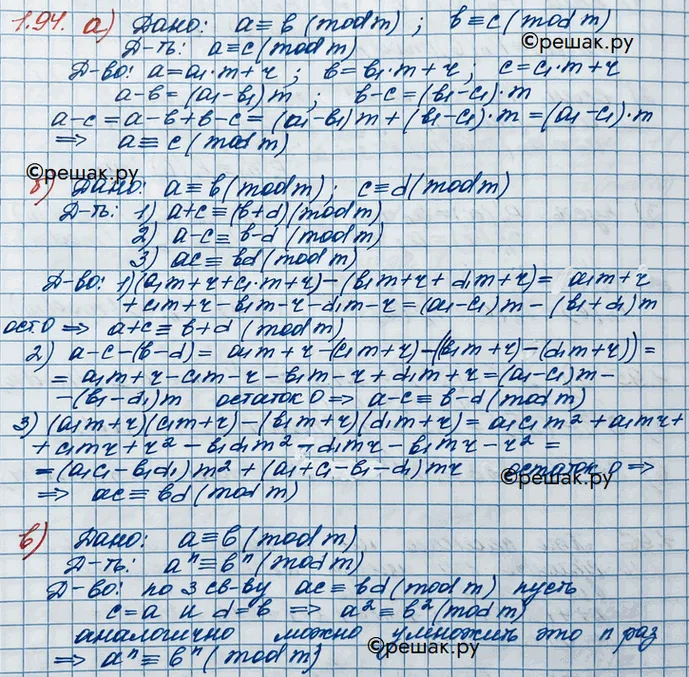 1.94. а) Дано: a≡b (mod m); b≡c (mod m)
©решак.ру
Д-ть: a≡c (mod m)
Д-во: a=a₁·m+r; b=b₁·m+r; c=c₁·m+r
a-b=(a₁-b₁)m; b-c=(b₁-c₁)·m
a-c=a-b+b-c=(a₁-b₁)m+(b₁-c₁)·m=(a₁-c₁)·m
⇒ a≡c (mod m)
©решак.ру
б) Дано: a≡b (mod m); c≡d (mod m)
Д-ть: 1) a+c≡(b+d)(mod m)
2) a-c≡b-d (mod m)
3) ac≡bd (mod m)
Д-во: 1) (a₁m+r+c₁·m+r)-(b₁m+r+d₁m+r)= a₁m+r
+c₁m+r-b₁m-r-d₁m-r=(a₁-c₁)m-(b₁+d₁)m
ост 0 ⇒ a+c≡b+d (mod m)
2) a-c-(b-d)= a₁m+r-(c₁m+r)-((b₁m+r)-(d₁m+r))=
= a₁m+r-c₁m-r-b₁m-r+d₁m+r=(a₁-c₁)m-
-(b₁-d₁)m остаток 0 ⇒ a-c≡b-d (mod m)
3) (a₁m+r)(c₁m+r)-(b₁m+r)(d₁m+r)= a₁c₁m²+a₁mr+
+c₁mr+r²-b₁d₁m²-d₁mr-b₁mr-r²=
=(a₁c₁-b₁d₁)m²+(a₁+c₁-b₁-d₁)mr остаток 0 ⇒
©решак.ру
⇒ ac≡bd (mod m)
в) Дано: a≡b (mod m)
Д-ть: aⁿ≡bⁿ (mod m)
Д-во: по 3 св-ву ac≡bd (mod m) пусть
c=a и d=b ⇒ a²≡b² (mod m)
аналогично можно умножить это n раз
©решак.ру
⇒ aⁿ≡bⁿ (mod m)